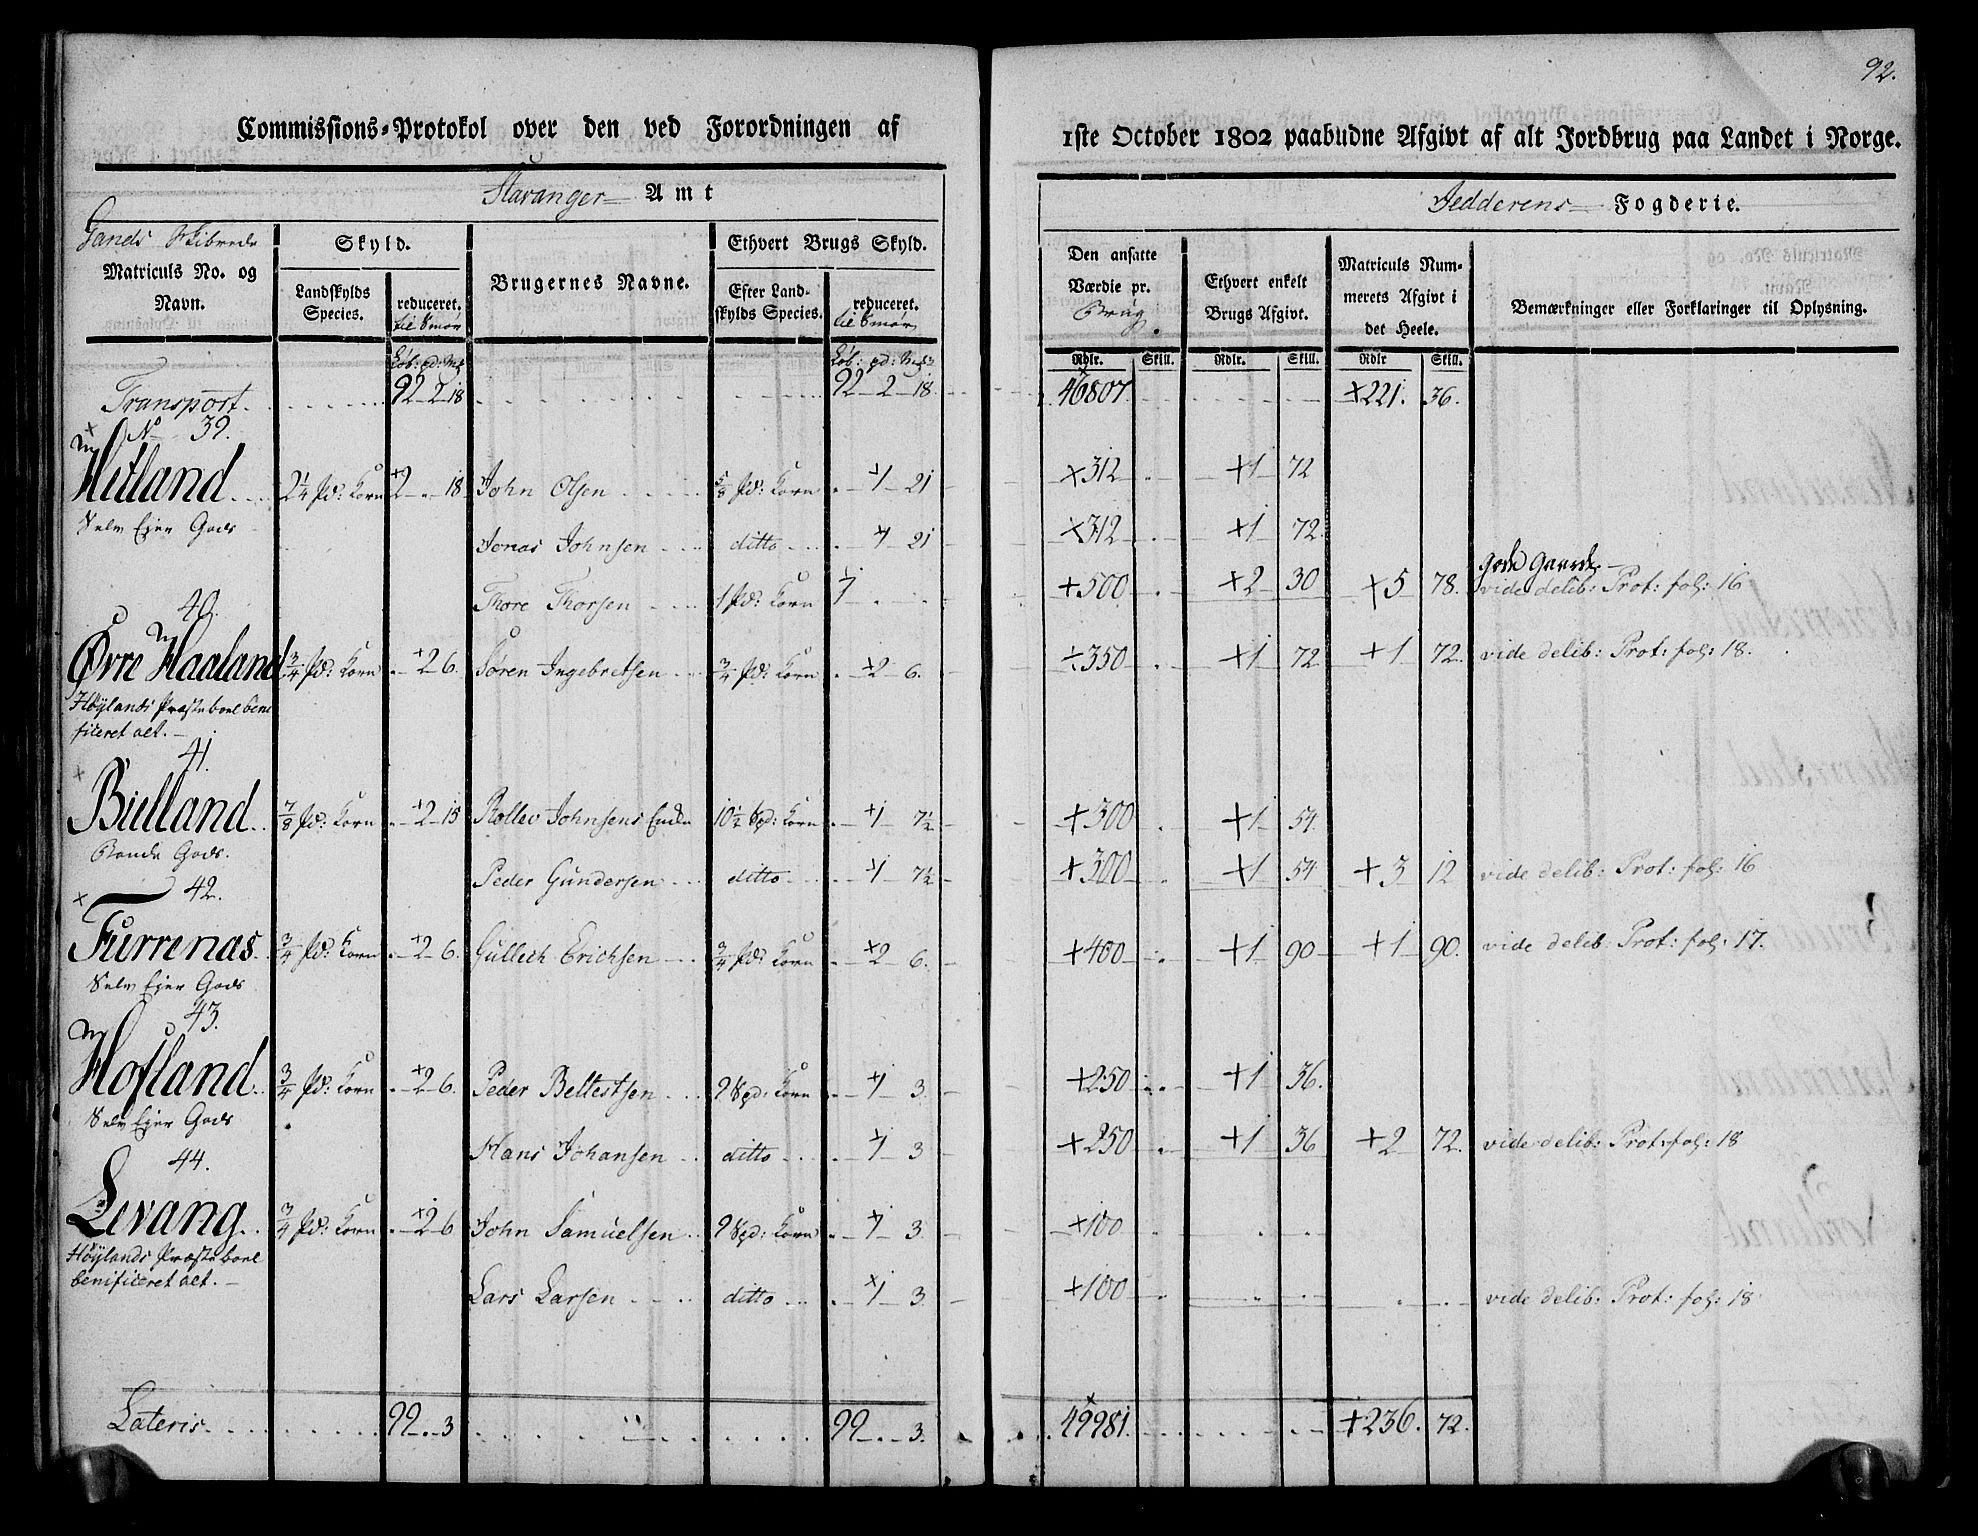 92.
Commissions-Protokol over den ved Forordningen af 1ste October 1802 paabudne Afgivt af alt Jordbrug paa Landet i Norge.
Stavanger Amt
Jedderens Fogderie.
Gands Skibrede
Matriculs No. og Navn.
Skyld.
Landskylds Species.
reduceret.
til Smør
Brugernes Navne.
Ethvert Brugs Skyld.
Efter Landskylds Species.
reduceret.
til Smør
Den ansatte Værdie pr. Brug.
Ethvert enkelt Brugs Afgivt.
Matriculs Nummerets Afgivt i det Heele.
Bemærkninger eller Forklaringer til Oplysning.
Rdlr. Skill. Rdlr. Skill. Rdlr Skill.
Transport 92 - 2 - 18 92 - 2 - 18. 46807 221. 36.
No 39.
Hetland 2 1/4 Pd: Korn 2 - 18 John Olsen 5/8 Pd: Korn 1 - 21 312 1 72
Selv Ejer Gods
Jonas Johnsen ditto 1 21 312 1 72
Thore Thorsen 1 Pd: Korn 1 500 2 30 5 78. vide delib: Prot: fol: 16
40.
Øvre Haaland 3/4 Pd: Korn 2 6. Søren Ingebretsen 3/4 Pd: Korn 2 6. 350 1 72 1 72. vide delib: Prot: fol: 18.
Høylands Præstebord beneficeret alt.
41.
Bülland 7/8 Pd: Korn 2 - 15 Rollev Johnsens Enke 10 1/2 Spd: Korn 1 7 1/2 300 1 54.
Bonde Gods.
Peder Gundersen ditto 1 7 1/2 300 1 54 3 12 vide delib: Prot: fol: 16
42.
Furrenas 3/4 Pd: Korn 2 6. Gullech Erichsen 3/4 Pd: Korn 2 6. 400 1 90 1 90. vide delib: Prot: fol: 17.
Selv Ejer Gods
43.
Hofland 3/4 Pd: Korn 2 6. Peder Beltestsen 9 Spd: Korn 1 3. 250 1 36.
Selv Ejer Gods
Hans Johansen ditto 1 3 250 1 36 2 72. vide delib: Prot: fol: 18
44.
Levang 3/4 Pd: Korn 2 6 John Samuelsen 9 Spd: Korn 1 3. 100
Høylands Præstebord benificeret alt.
Lars Larsen ditto 1 3. 100 vide delib: Prot: fol: 18
Lateris 99 - 3 99 - 3. 49981. 236. 72.